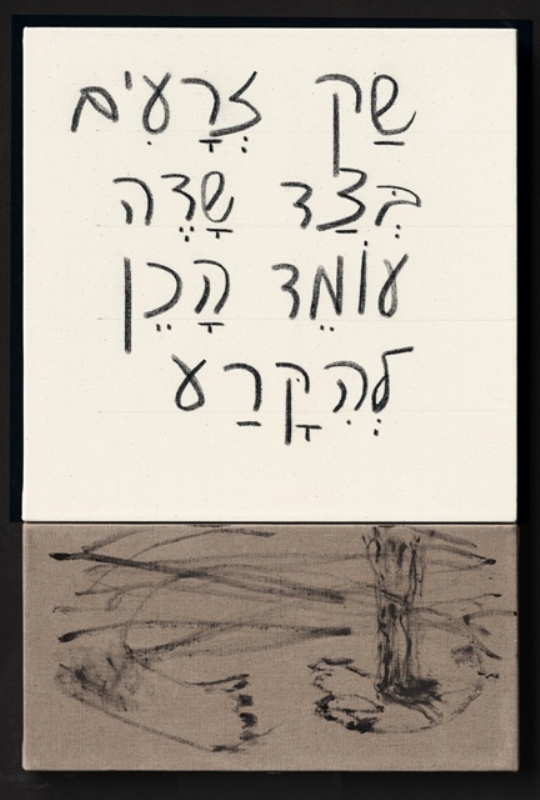 שַׂק זְרָעִים
בְּצַד שָׂדֶה
עוֹמֵד הָכֵן
לְהִקָּרַע